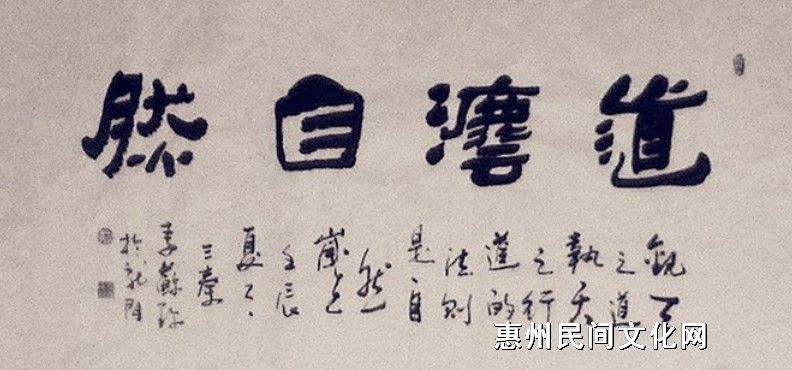 道灋自然
觀天
之道
執天
之行
道的
法則
是自
然
歲在
壬辰
夏
三秦
李蘇
於龍門
惠州民间文化网